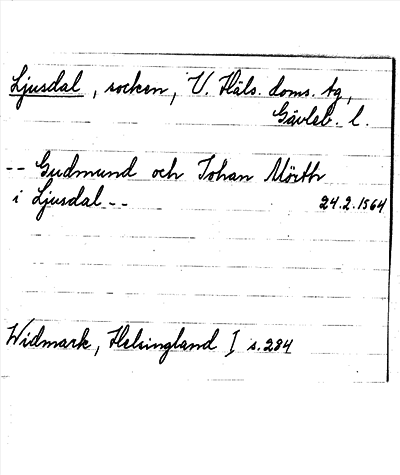 Ljusdal, socken, V. Häls. doms. tg,
Gävleb. l.
-- Gudmund och Johan Mörth
i Ljusdal --
24.2.1564
Widmark, Helsingland I s. 284